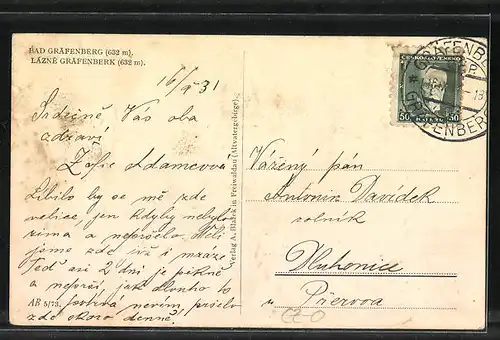 BAD GRÄFENBERG (632 m).
LÁZNĚ GRÄFENBERK (632 m).
16/9 31
Srdečně Vás oba
zdraví
Žofie Adamcová
Líbilo by se mě zde
velice, jen kdyby nebylo
zima a nepršelo. Měli
jsme zde již i mráz
Teď asi 2 dni je pěkně
a neprší, jak dlouho to
potrvá nevím pršelo
zde skoro denně!
AB 5/73.
Verlag A. Blažek in Freiwaldau (Altvatergebirge).
ČESKOSLOVENSKO
50 50
GRÄFENBERG
GRÄFENBERK
Vážený pán
Antonín Davídek
rolník
Dluhonice
u Přerova